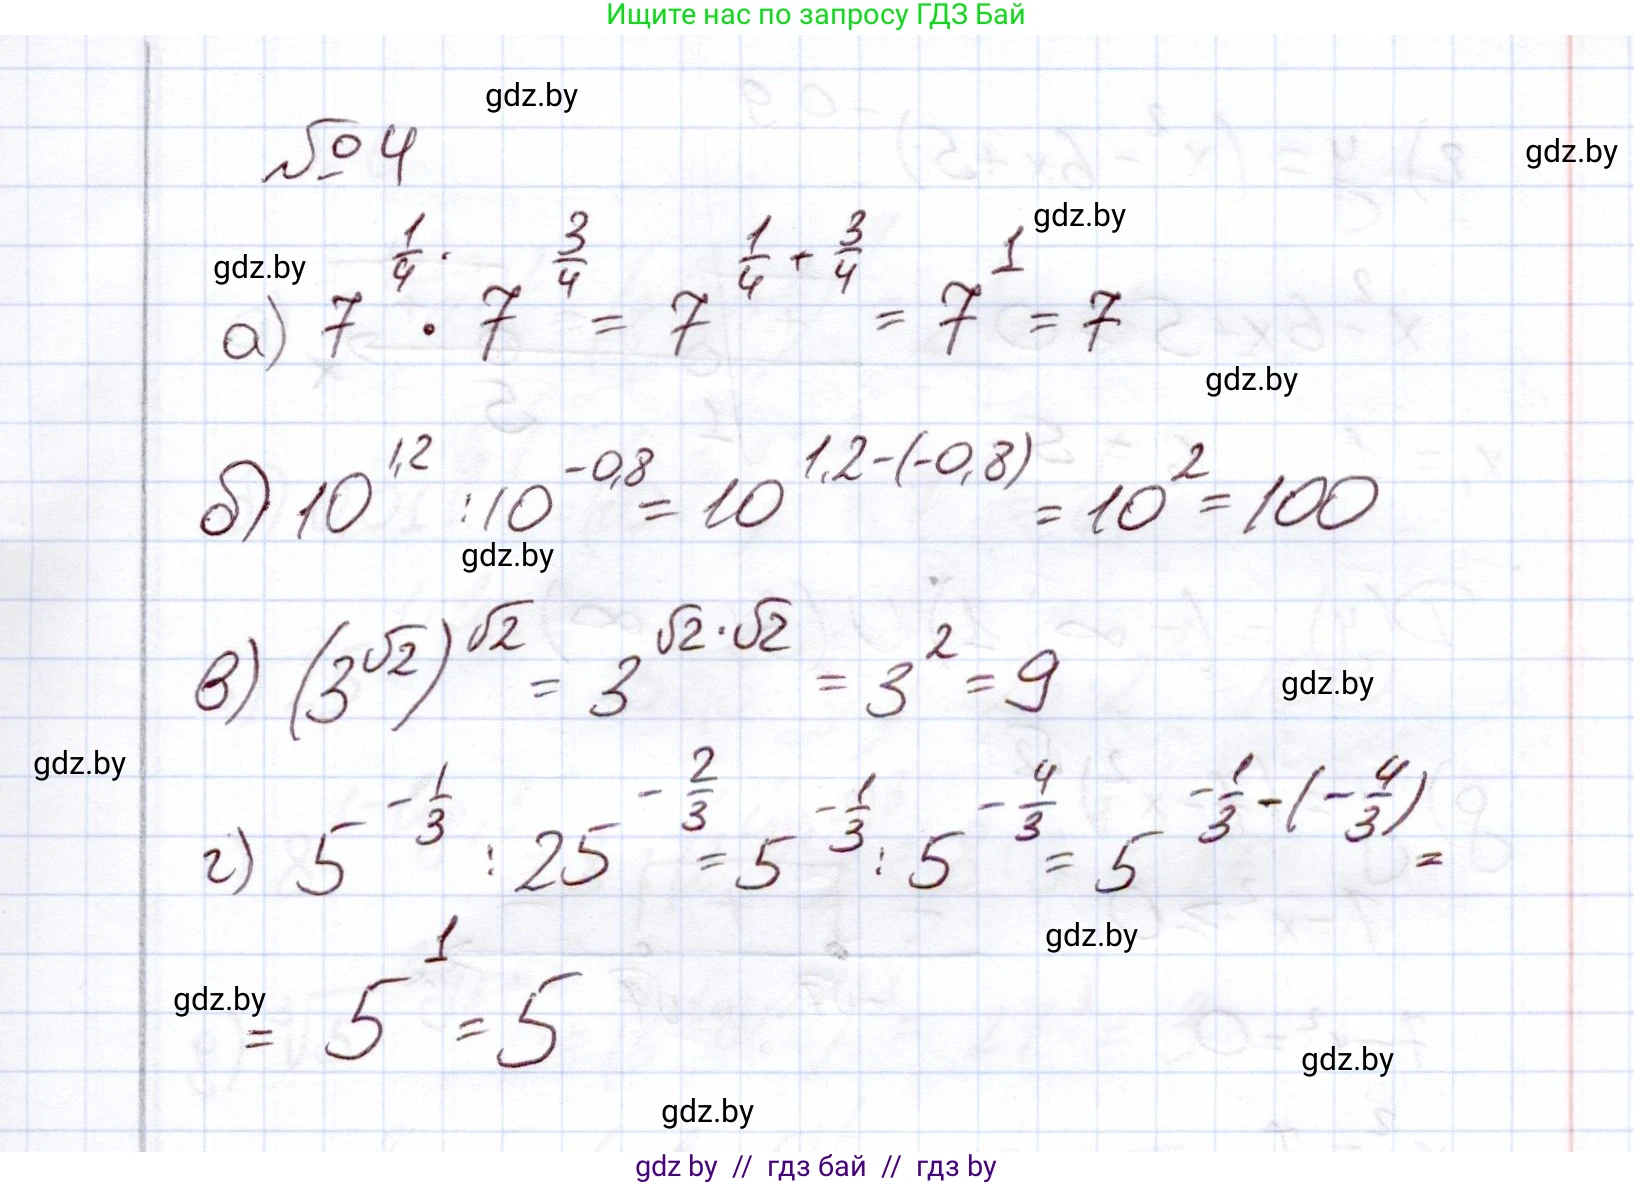 Ищите нас по запросу ГДЗ Бай
gdz.by
№ 4
gdz.by
gdz.by
gdz.by
а) 7^(1/4) · 7^(3/4) = 7^(1/4 + 3/4) = 7^1 = 7
gdz.by
б) 10^(1,2) : 10^(-0,8) = 10^(1,2-(-0,8)) = 10^2 = 100
gdz.by
в) (3^√2)^√2 = 3^(√2·√2) = 3^2 = 9
gdz.by
gdz.by
г) 5^(-1/3) : 25^(-2/3) = 5^(-1/3) : 5^(-4/3) = 5^(-1/3-(-4/3)) =
gdz.by
gdz.by
= 5^1 = 5
gdz.by
gdz.by
gdz by // гдз бай // гдз by